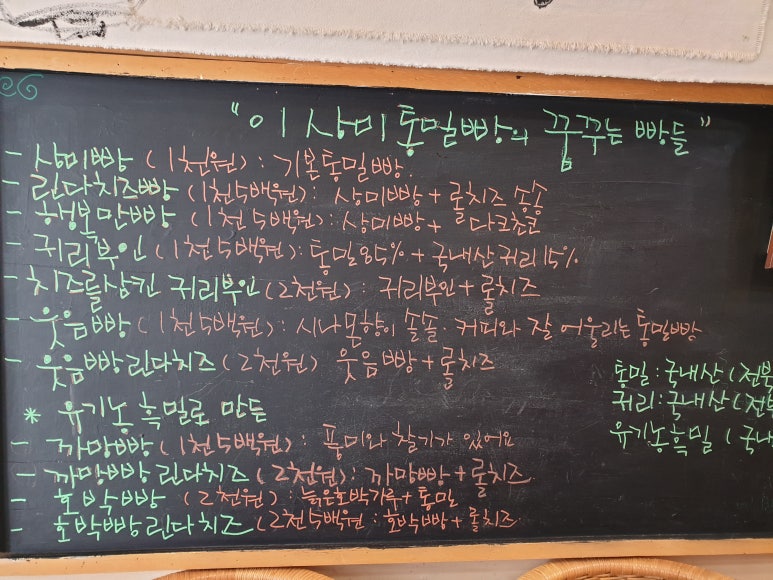 "이상미통밀빵의 꿈꾸는 빵들"
- 상미빵 (1천원) : 기본통밀빵.
- 린다치즈빵 (1천5백원) : 상미빵 + 롤치즈 송송
- 행복만빵 (1천5백원) : 상미빵 + 다크초코
- 귀리부인 (1천5백원) : 통밀85% + 국내산귀리15%
- 치즈를삼킨 귀리부인 (2천원) : 귀리부인 + 롤치즈
- 웃음빵 (1천5백원) : 시나몬향이 솔솔. 커피와 잘 어울리는 통밀빵
- 웃음빵린다치즈 (2천원) 웃음빵 + 롤치즈
통밀 : 국내산 (전북
귀리 : 국내산 (전북
유기농흑밀 ( 국내
* 유기농흑밀로 만든
- 까망빵 (1천5백원) : 풍미와 찰기가 있어요
- 까망빵린다치즈 (2천원) : 까망빵 + 롤치즈
- 호박빵 (2천원) : 늙은호박가루 + 통밀
- 호박빵린다치즈 (2천5백원 : 호박빵 + 롤치즈